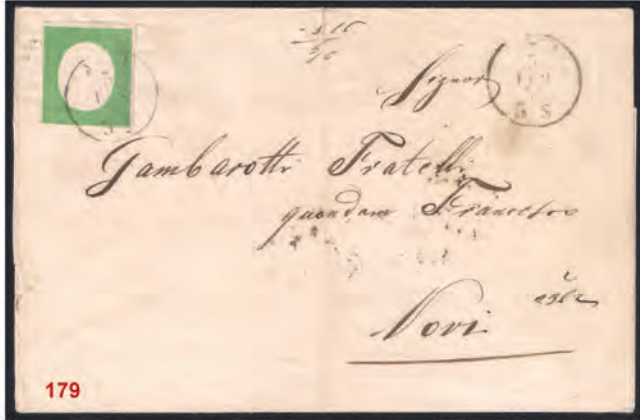 Signor
Gambarotti Fratelli
quondam Francesco
Novi
5 S
179